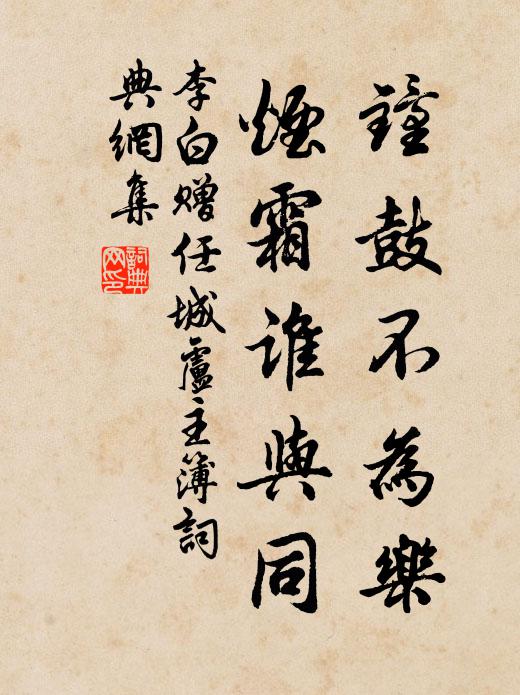 鐘鼓不為樂
煙霜誰與同
李白贈任城盧主簿詞
典網集
詞典網印